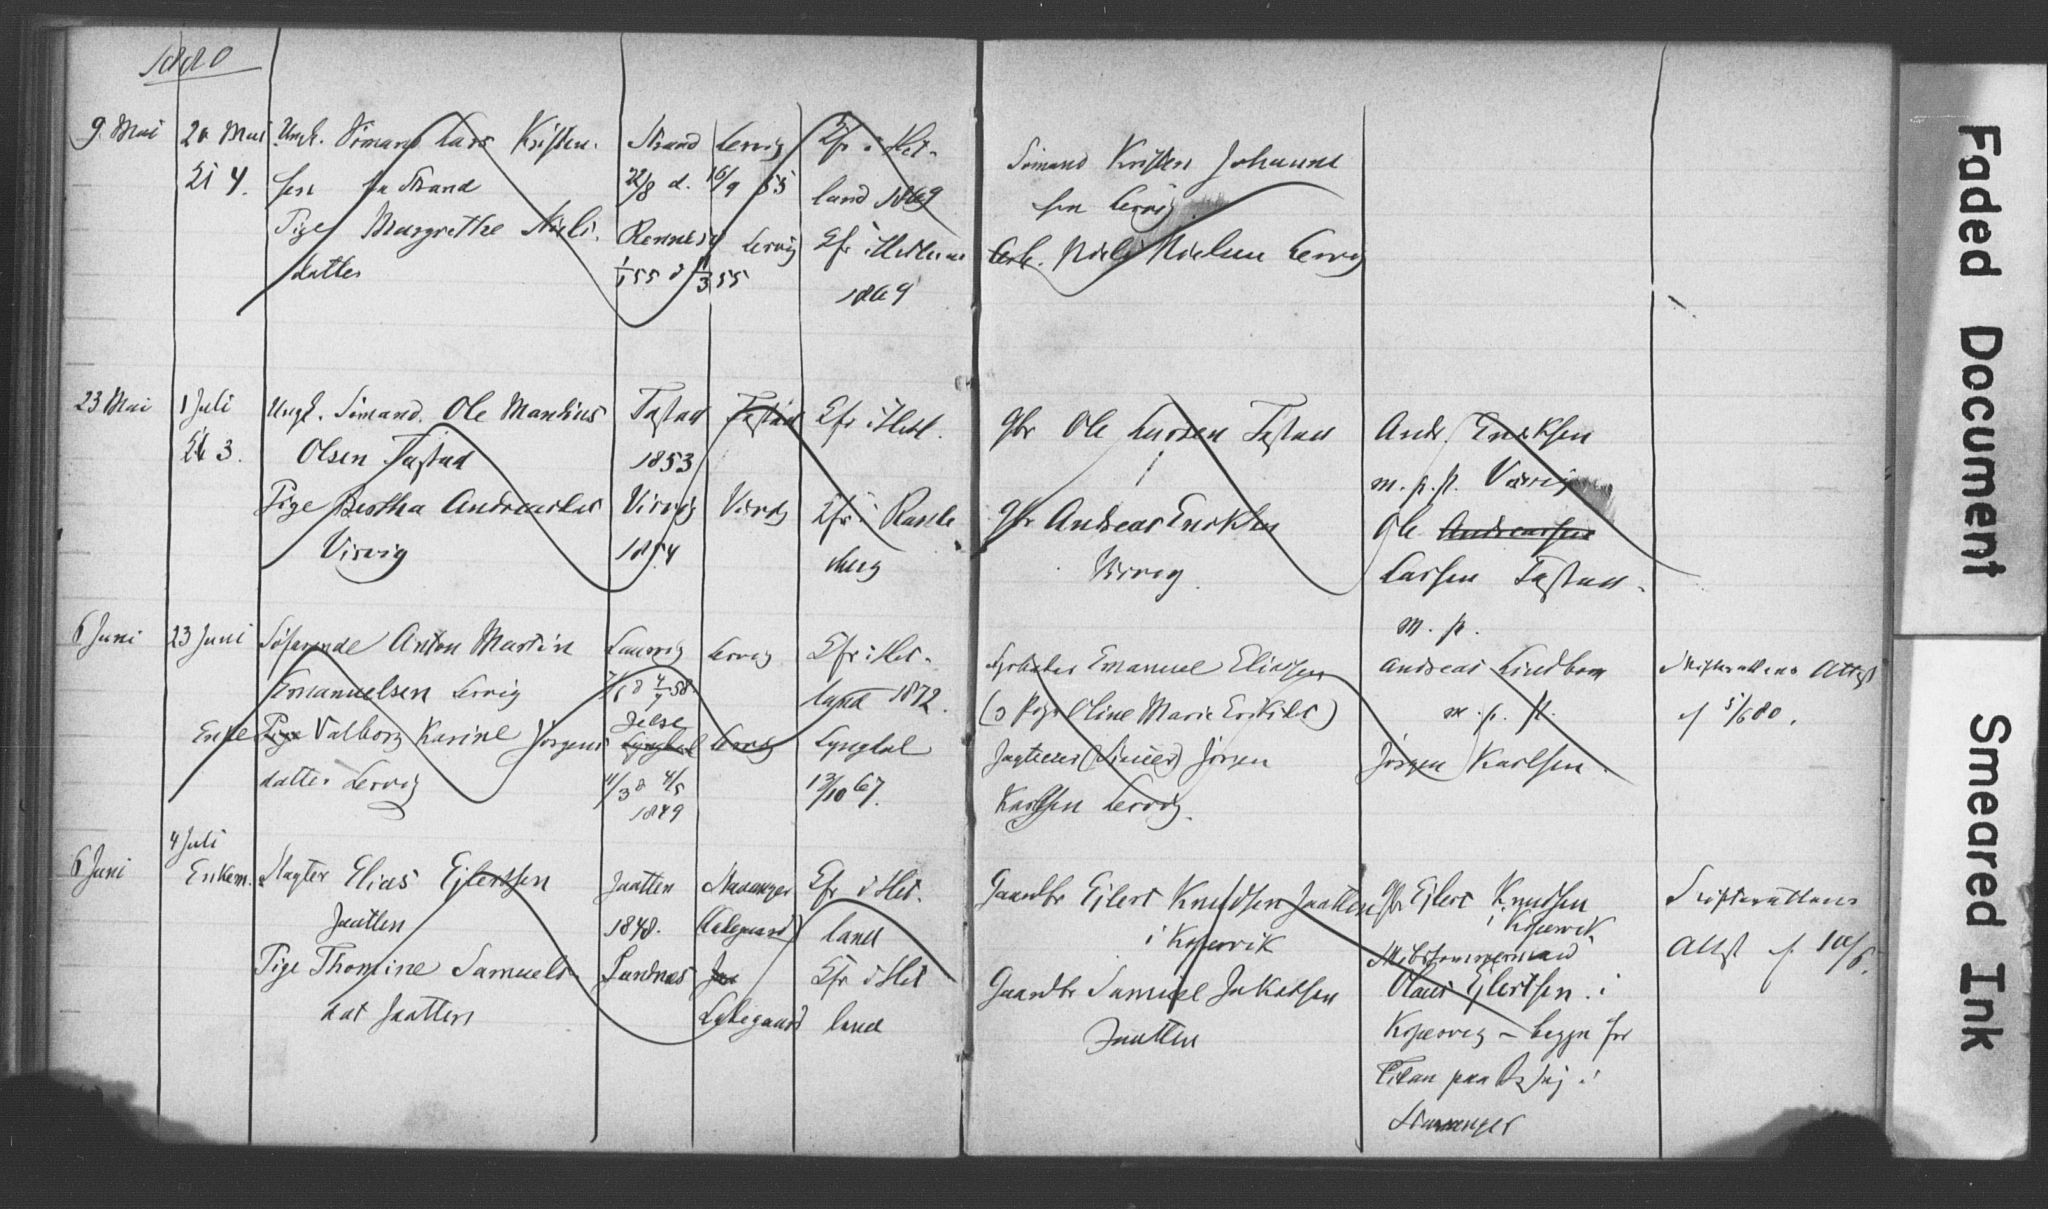 1880
9. Mai
20 Mai
Kl 4.
Ungk. Sömand Lars Kristen-
sen fra Strand
Pige Margrethe Niels-
datter
Strand
22/8 d. 16/9 55
Rennesø
1/1 55 d 11/3 55
Lervig
Lervig
Efr i Het-
land 1869
Efr i Hetland
1869
Sömand Kristen Johanne
sen Lervig
Arb. Niels Nielsen Lervig
23 Mai
1 Juli
Kl 3.
Ungk. Sömand. Ole Mandius
Olsen Tastad
Pige Bertha Andreasdat
Visvig
Tastad
1853
Visvig
1854
Tastad
Visvig
Efr i Hetl.
Efr i
berg
Gbr Ole Larsen Tastad
Gbr Andreas Eriksen
Visvig
Andr Eriksen
m. p. p.
Ole Andreassen
Larsen Tastad.
m. p.
6 Juni
23 Juni
Söfarende Anton Martin
Emanuelsen Lervig
Enke Pige Valborg Karine Jörgens
datter Lervig
58
Jelse
Lyngdal
11/3 d 4/5
1849
Lervig
Lervig
Efr i Het-
land 1872.
Lyngdal
13/10 67.
Emanuel Eliassen
(o Pige Eline Marie Eriksdt)
Jörgen
Karlsen Lervig.
Andreas Lindbom
m. p. p.
Jörgen Karlsen
Skifterettens Attest
af 5/6 80.
6 Juni
4 Juli
Enkem. Slagter Elias Ejlertsen
Jaatten
Pige Thomine Samuels-
dat Jaatten
Jaatten
1848.
Sandnæs
Stavanger
Ladegaard
Jaa
Ladegaard
Efr i Het-
land
Efr i Het
land
Gaardbr Ejlert Knudsen Jaatten
i Kopervik
Gaardbr Samuel Jakobsen
Jaatten
Gbr Ejlert Knudsen
i Kopervik.
Skibstømmermand
Olaus Ejlertsen i
Kopervig – begge for
Tiden paa
Stavanger
Skifterettens
Attst af 10/6.
Faded Document
Smeared Ink